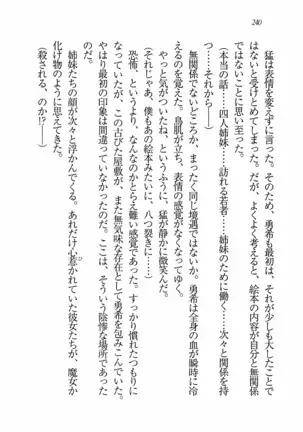 240
猛は表情を変えずに言った。そのため、勇希も最初は、それが少しも大したことで
はないと受けとめてしまった。だが、よくよく考えると、絵本の内容が自分と無関係
ではないことに思い至った。
(本当の話……四人姉妹……訪れる若者……姉妹のために働く……次々と関係を持
つ……それから――)
無関係でないどころか、まったく同じ境遇ではないか。勇希は全身の血が瞬時に冷
えるのを覚えた。鳥肌が立ち、表情の感覚がなくなってゆく。
やっと気がついたね、というふうに、猛が静かに微笑んだ。
(それじゃあ、僕もあの絵本みたいに、八つ裂きに……)
恐怖、というより、なんなのかとらえ難い感覚であった。すっかり慣れたつもりに
なっていたが、この古びた屋敷が、また無気味な存在として勇希を包みこんでいた。
やはり最初の印象は間違っていなかったのだ。ここは、そういう陰惨な場所であった
のだ。
姉妹たちの顔が次々と浮かんでくる。あれだけ心惹かれていた彼女たちが、魔女か
化け物のように思えてきた。
(殺される、のか!?)